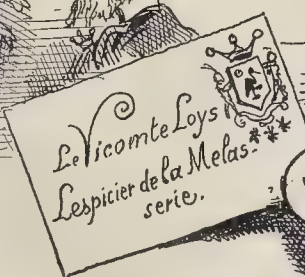 Le Vicomte Loys
Lespicier de la Melas-
serie.